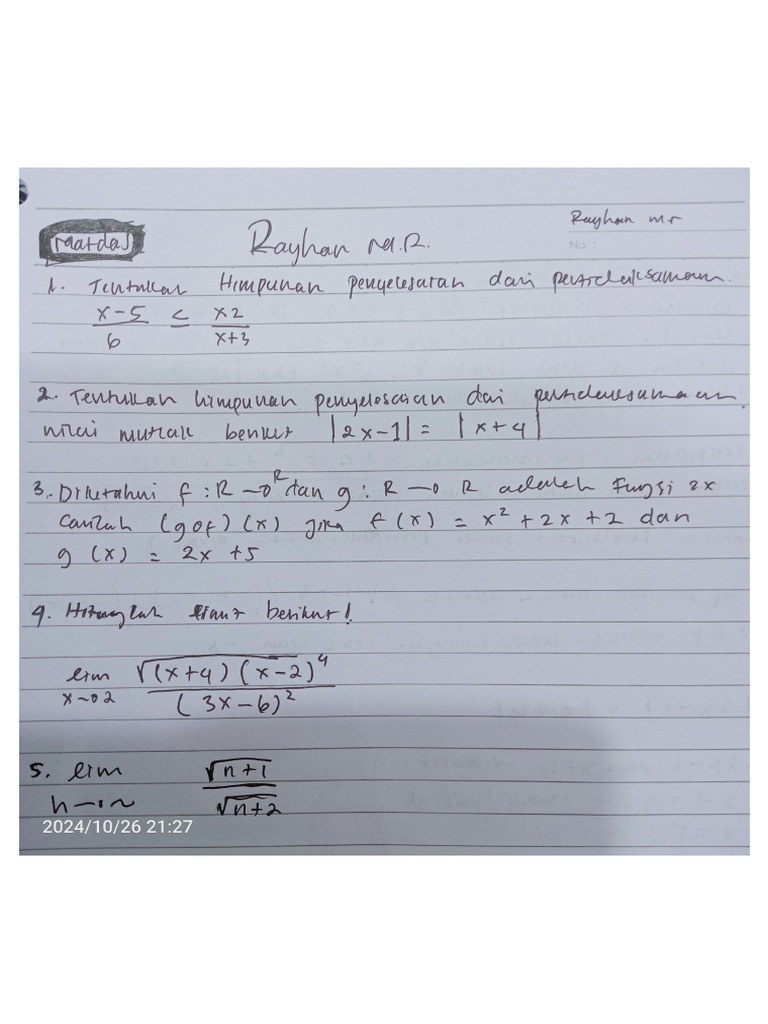 Rayhan Mr
Matdas
Rayhan M.R.
No.:
1. Tentukan Himpunan penyelesaian dari pertidaksamaan.
x-5 / 6 ≤ x2 / x+3
2. Tentukan himpunan penyelesaian dari pertidaksamaan
nilai mutlak berikut |2x-1| = |x+4|
3. Diketahui f : R → R dan g : R → R adalah Fungsi 2x
carilah (gof)(x) jika f(x) = x² + 2x + 2 dan
g (x) = 2x + 5
4. Hitunglah limit berikut!
lim x→2 √(x+4)(x-2)⁴ / (3x-6)²
5. lim n→~ √n+1 / √n+2
2024/10/26 21:27